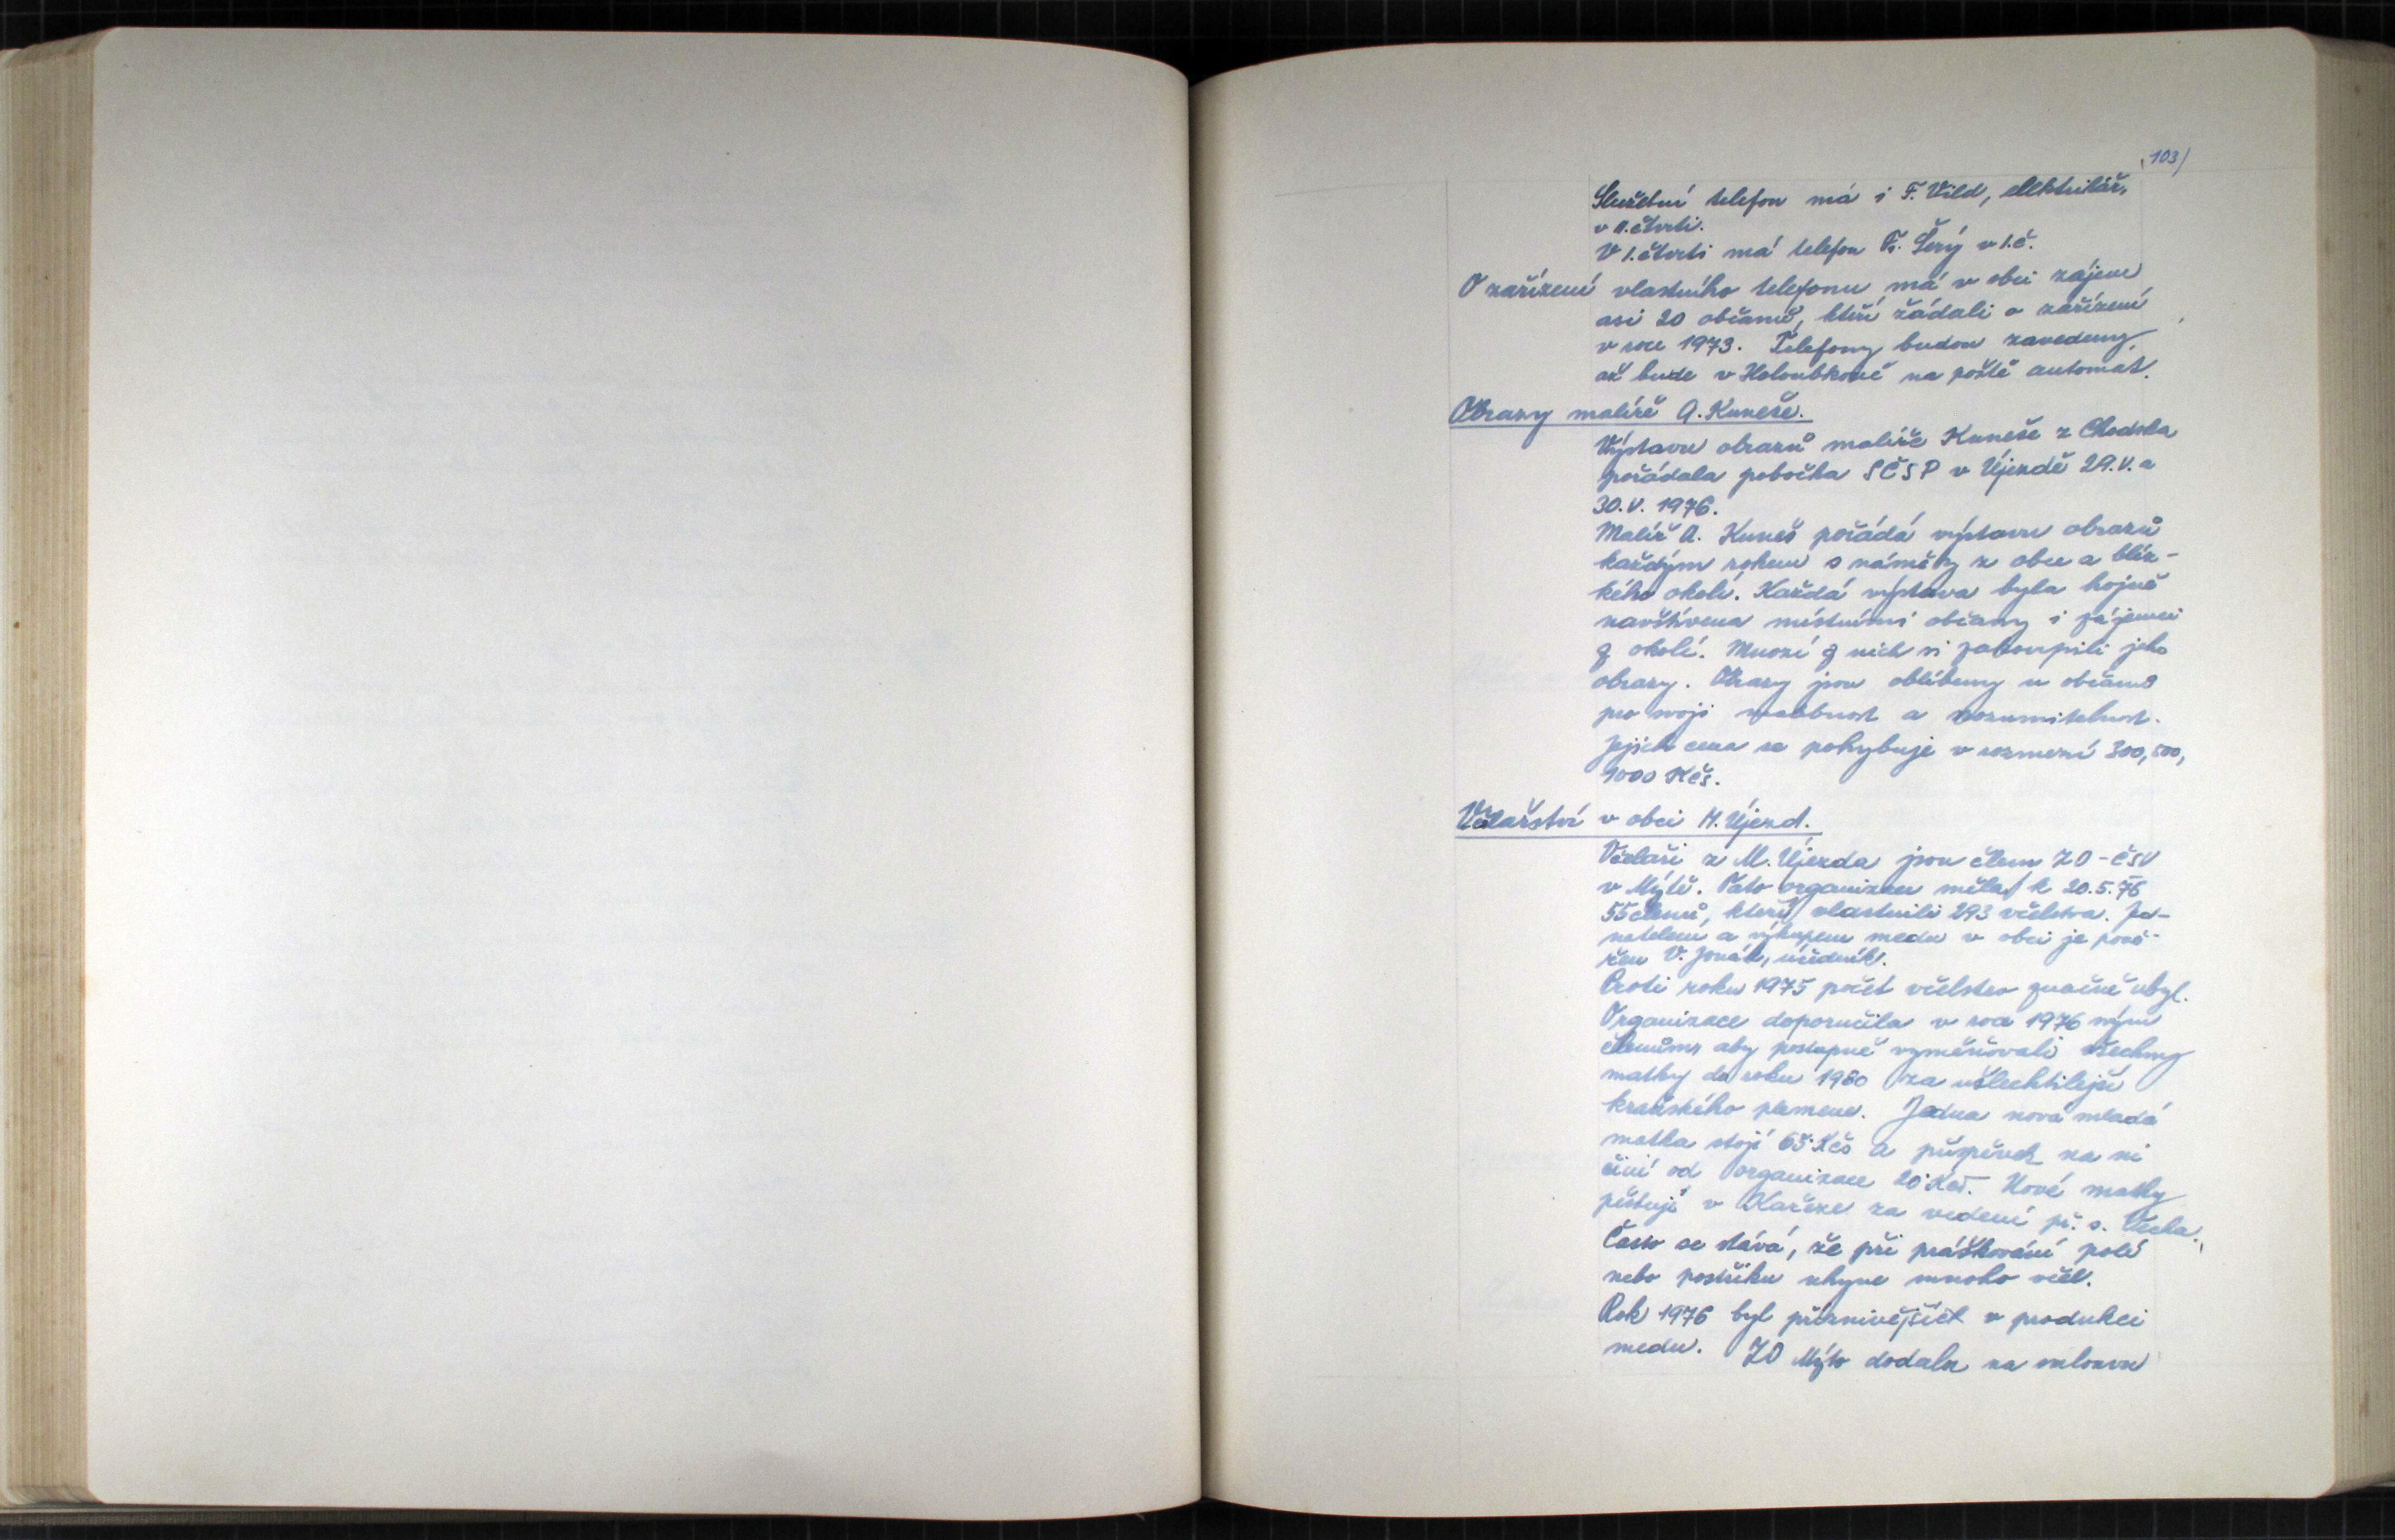 103/
Služební telefon má i F. Vild, elektrikář,
v II. čtvrti.
V I. čtvrti má telefon Fr. Šerý v I.č.
O zařízení vlastního telefonu má v obci zájem
asi 20 občanů, kteří žádali o zařízení
v roce 1973. Telefony budou zavedeny,
až bude v Holoubkově na poště automat.
Obrazy malíře A. Kuneše.
Výstavu obrazů malíře Kuneše z Chodska
pořádala pobočka SČSP v Újezdě 29.V. a
30.V. 1976.
Malíř A. Kuneš pořádá výstavu obrazů
každým rokem s náměty z obce a blíz-
kého okolí. Každá výstava byla hojně
navštívena místními občany i zájemci
z okolí. Mnozí z nich si zakoupili jeho
obrazy. Obrazy jsou oblíbeny u občanů
pro svoji malebnost a srozumitelnost.
Jejich cena se pohybuje v rozmezí 300, 500,
1000 Kčs.
Včelařství v obci M. Újezd.
Včelaři z M. Újezda jsou členy ZO-ČSV
v Mýtě. Tato organizace měla k 20.5.76
55 členů, kteří vlastnili 293 včelstva. Jed-
natelem a výkupem medu v obci je pově-
řen V. Jonák, úředník.
Proti roku 1975 počet včelstev značně ubyl.
Organizace doporučila v roce 1976 svým
členům, aby postupně vyměňovali všechny
matky do roku 1980 za ušlechtilejší
kraňského plemene. Jedna nová mladá
matka stojí 65 Kčs a příspěvek na ni
činí od organizace 20 Kčs. Nové matky
pěstují v Kařeze za vedení př. s.
Často se stává, že při práškování polí
nebo postřiku uhyne mnoho včel.
Rok 1976 byl příznivější v produkci
medu. ZO Mýto dodala na smlouvu